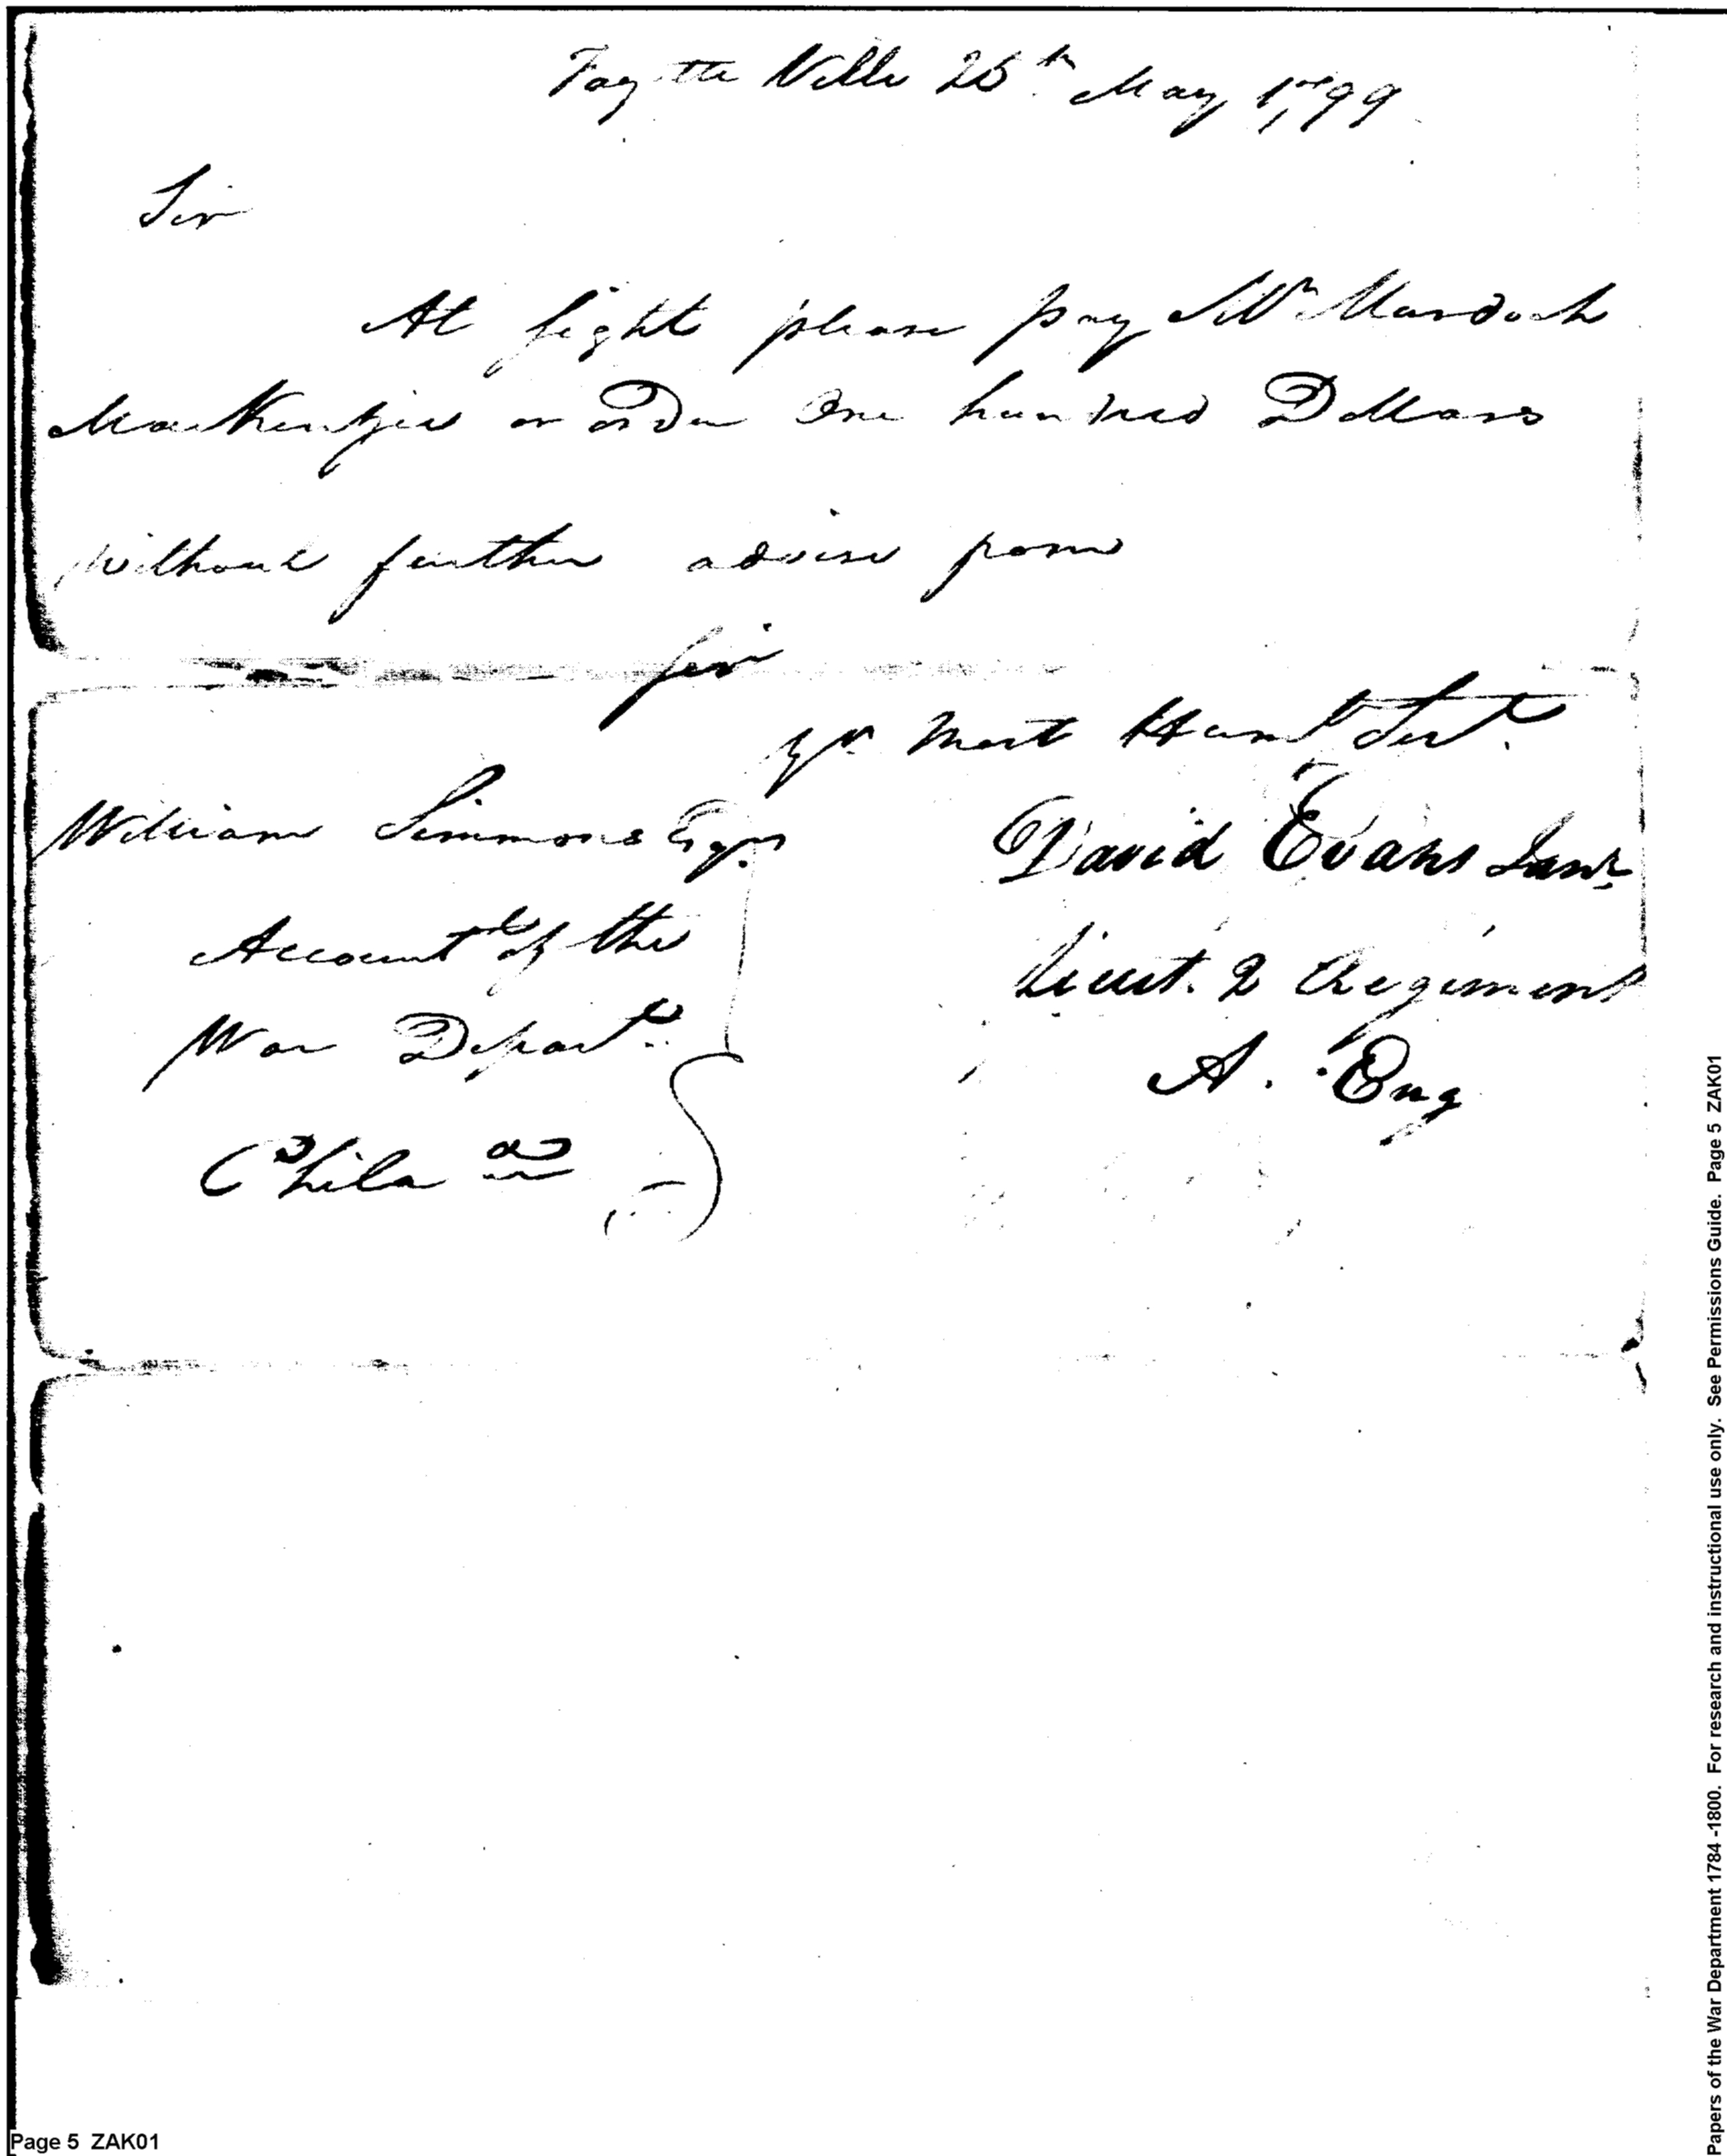 Fayette Ville 25th May 1799
Sir
At sight please pay Mr Murdoch
MacKenzie or order One hundred Dollars
without further advise from
Sir
yr. Most Humb Servt.
William Simmons Esqr.
David Evans Junr.
Accountt of the
Lieut. 2 Regiment
War Departt.
A. Eng
Phila
Page 5 ZAK01
Papers of the War Department 1784 -1800. For research and instructional use only. See Permissions Guide. Page 5 ZAK01